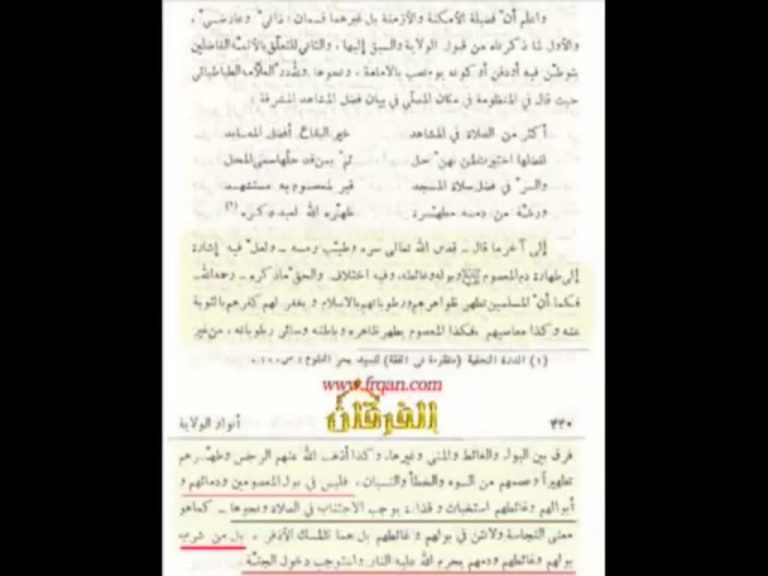 واعلم أن فضيلة الأمكنة والأزمنة بل غيرهما قسمان: ذاتي وعارضي،
والأول لما ذكرناه من قبول الولاية والسبق إليها، والثاني للتعلق بالأئمة الفاضلين
بتوطن فيه أو دفن أو كونه يوم نصب بالامامة، ونحوها ولله در العلامة الطباطبائي
حيث قال في المنظومة في مكان المصلي في بيان فضل المشاهد المشرفة:
أكثر من الصلاة في المشاهد خير البقاع أفضل المعابد
لفضلها اختيرت لمن بهن حل ثم بمن قد حلها سمى المحل
والسر في فضل صلاة المسجد قبر لمعصوم به مستشهد
ورشة من دمه مطهرة طهره الله لعبد ذكره
إلى آخر ما قال - قدس الله تعالى سره وطيب رمسه - ولعل فيه إشارة
إلى طهارة دم المعصوم وبوله وغائطه، وفيه اختلاف. والحق ما ذكره - رحمه الله -
فكما أن المسلمين تطهر ظواهرهم ورطوباتهم بالاسلام ويغفر لهم كفرهم بالتوبة
عنه وكذا معاصيهم فكذا المعصوم يطهر ظاهره وباطنه وسائر رطوباته، من غير
(١) الدرة النجفية (منظومة في الفقة) للسيد بحر العلوم: ص
www.frqan.com
الفرقان
٤٤٠ أنوار الولاية
فرق بين البول والغائط والمني وغيرها، وكذا أذهب الله عنهم الرجس وطهرهم
تطهيراً وعصمهم من السوء والخطأ والنسيان، فليس في بول المعصومين ودمائهم و
أبوالهم وغائطهم استخباث وقذارة يوجب الاجتناب في الصلاة ونحوها - كما هو
معنى النجاسة ولا نتن في بولهم وغائطهم بل هما كالمسك الأذفر، بل من شرب
بولهم وغائطهم ودمهم يحرم الله عليه النار واستوجب دخول الجنة